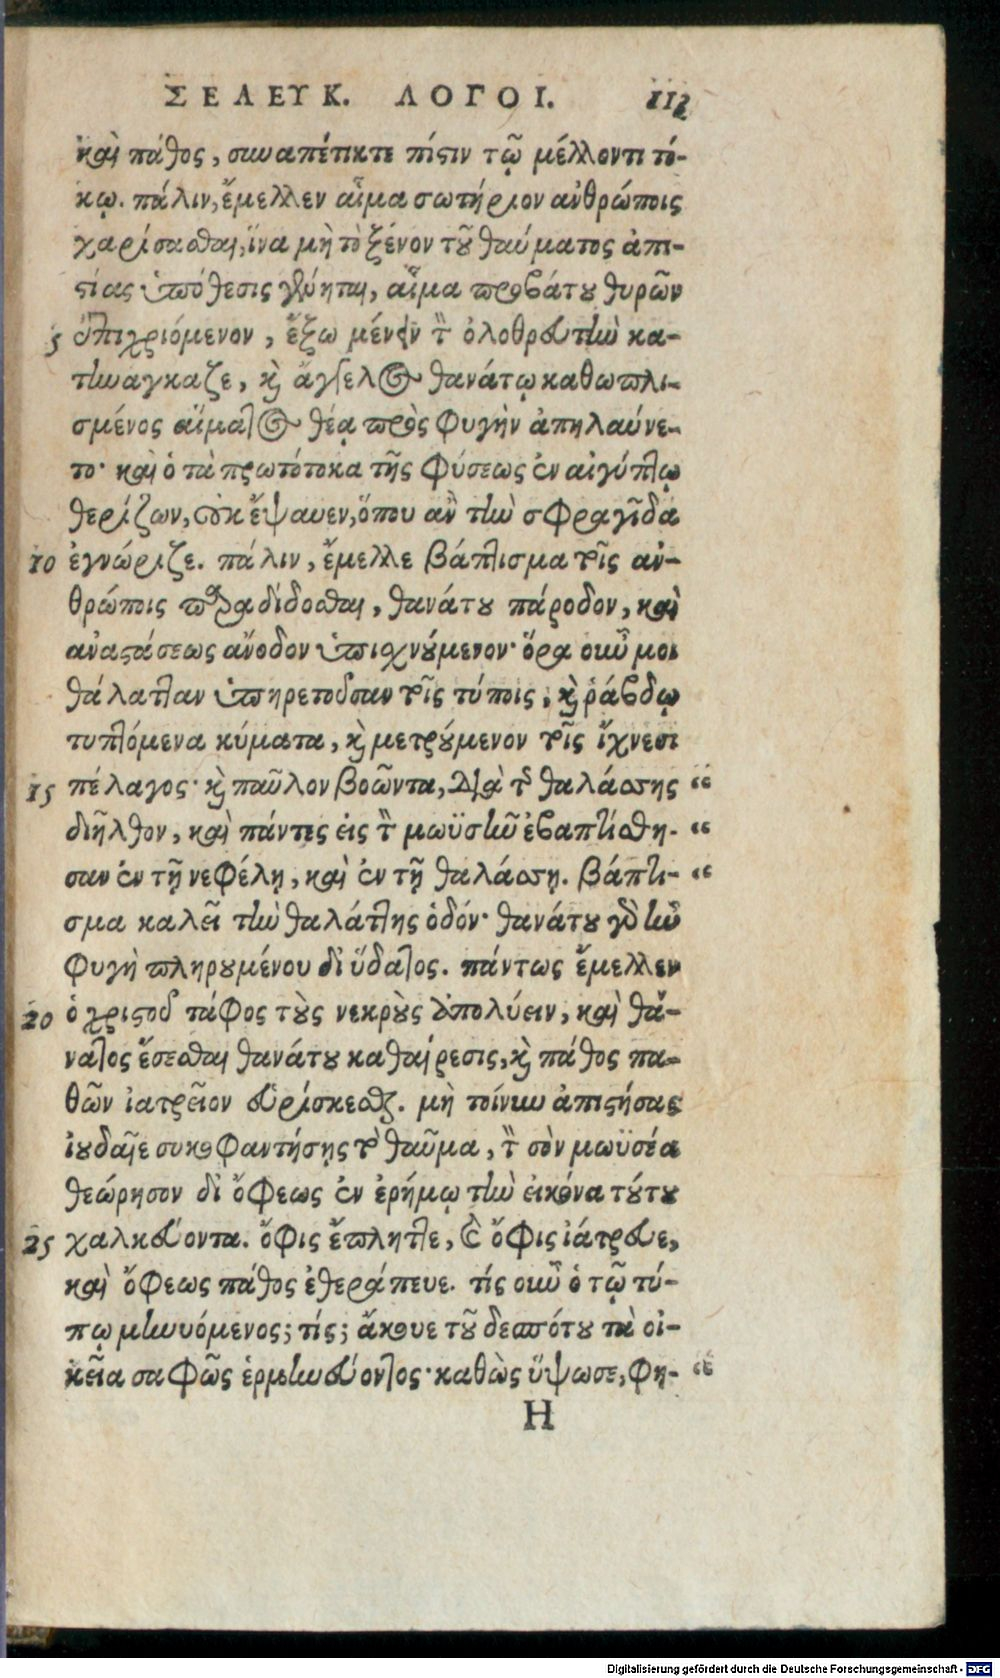 ΣΕΛΕΥΚ. ΛΟΓΟΙ. 113
καὶ πάθος, συναπέτικτε πίστιν τῷ μέλλοντι τό-
κῳ. πάλιν, ἔμελλεν αἷμα σωτήριον ἀνθρώποις
χαρίσασθαι, ἵνα μὴ τὸ ξένον τοῦ θαύματος ἀπι-
στίας ὑπόθεσις γένηται, αἷμα προβάτου θυρῶν
5 ἐπιχριόμενον, ἔξω μένειν τὸν ὀλοθρευτὴν κα-
τηνάγκαζε, καὶ ἄγγελος θανάτῳ καθωπλι-
σμένος αἵματος θέᾳ πρὸς φυγὴν ἀπηλαύνε-
το· καὶ ὁ τὰ πρωτότοκα τῆς φύσεως ἐν αἰγύπτῳ
θερίζων, οὐκ ἔψαυεν, ὅπου ἂν τὴν σφραγῖδα
10 ἐγνώριζε. πάλιν, ἔμελλε βάπτισμα τοῖς ἀν-
θρώποις παραδίδοσθαι, θανάτου πάροδον, καὶ
ἀναστάσεως ἄνοδον ὑπισχνούμενον· ὅρα οὖν μοι
θάλατταν ὑπηρετοῦσαν τοῖς τύποις, καὶ ῥάβδῳ
τυπτόμενα κύματα, καὶ μετρούμενον τοῖς ἴχνεσι
15 πέλαγος· καὶ παῦλον βοῶντα, Διὰ τῆς θαλάσσης “
διῆλθον, καὶ πάντες εἰς τὸν μωϋσῆν ἐβαπτίσθη- “
σαν ἐν τῇ νεφέλῃ, καὶ ἐν τῇ θαλάσσῃ. βάπτι- “
σμα καλεῖ τὴν θαλάττης ὁδόν· θανάτου γὰρ ἦν
φυγὴ πληρουμένου δι ὕδατος. πάντως ἔμελλεν
20 ὁ χριστοῦ τάφος τοὺς νεκροὺς ἀπολύειν, καὶ θά-
νατος ἔσεσθαι θανάτου καθαίρεσις, καὶ πάθος πα-
θῶν ἰατρεῖον εὑρίσκεσθαι. μὴ τοίνυν ἀπιστήσας
ἰουδαῖε συκοφαντήσῃς τὸ θαῦμα, τὸν σὸν μωϋσέα
θεώρησον δι ὄφεως ἐν ἐρήμῳ τὴν εἰκόνα τούτου
25 χαλκεύοντα. ὄφις ἔπληττε, καὶ ὄφις ἰάτρευε,
καὶ ὄφεως πάθος ἐθεράπευε. τίς οὖν ὁ τῷ τύ-
πῳ μηνυόμενος; τίς; ἄκουε τοῦ δεσπότου τὰ οἰ-
κεῖα σαφῶς ἑρμηνεύοντος· καθὼς ὕψωσε, φη- “
H
Digitalisierung gefördert durch die Deutsche Forschungsgemeinschaft - DFG